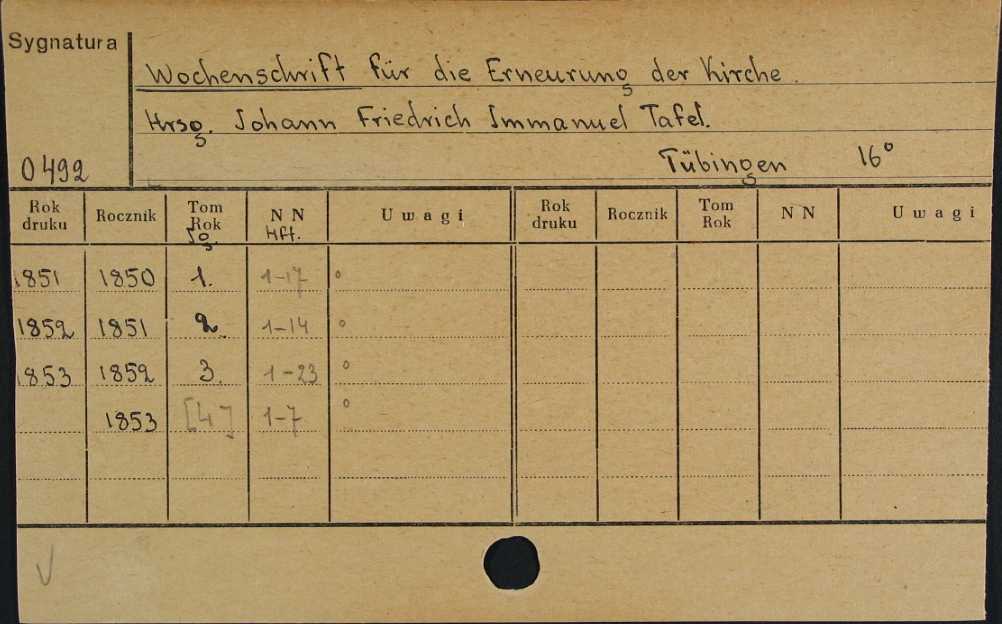 Sygnatura
Wochenschrift für die Erneurung der Kirche.
Hrsg. Johann Friedrich Immanuel Tafel.
0492 Tübingen 16°
Rok druku Rocznik Tom Rok N N U w a g i Rok druku Rocznik Tom Rok N N U w a g i
Jg. Hft.
1851 1850 1. 1-17 °
1852 1851 2. 1-14 °
1853 1852 3. 1-23 °
1853 [4] 1-7 °